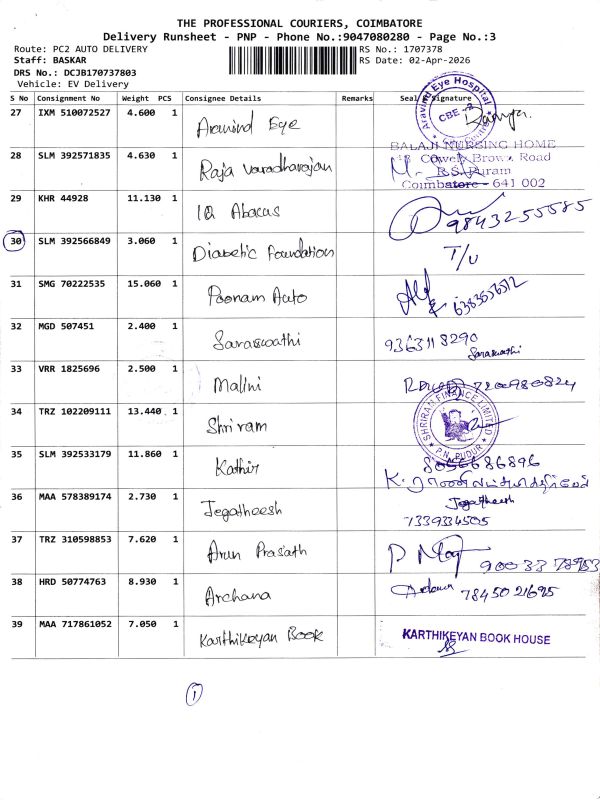 THE PROFESSIONAL COURIERS, COIMBATORE
Delivery Runsheet - PNP - Phone No.:9047080280 - Page No.:3
Route: PC2 AUTO DELIVERY RS No.: 1707378
Staff: BASKAR RS Date: 02-Apr-2026
DRS No.: DCJB170737803
Vehicle: EV Delivery
S No Consignment No Weight PCS Consignee Details Remarks Seal Signature
27 IXM 510072527 4.600 1 Aravind Eye
Aravind Eye Hospital CBE
28 SLM 392571835 4.630 1 Raja Varadharajan
BALAJI NURSING HOME
Cowely Brown Road
R.S. Puram
Coimbatore - 641 002
29 KHR 44928 11.130 1 IQ Abacus 9843255585
30 SLM 392566849 3.060 1 Diabetic Foundation T/U
31 SMG 70222535 15.060 1 Poonam Auto
32 MGD 507451 2.400 1 Saraswathi 9363118290
Saraswathi
33 VRR 1825696 2.500 1 Malini
34 TRZ 102209111 13.440 1 Shriram
SHRIRAM FINANCE LIMITED P.N. PUDUR
35 SLM 392533179 11.860 1 Kathir
36 MAA 578389174 2.730 1 Jegatheesh Jegatheesh
7339334505
37 TRZ 310598853 7.620 1 Arun Prasath
38 HRD 50774763 8.930 1 Archana 7845021695
39 MAA 717861052 7.050 1 Karthikeyan Book KARTHIKEYAN BOOK HOUSE
1